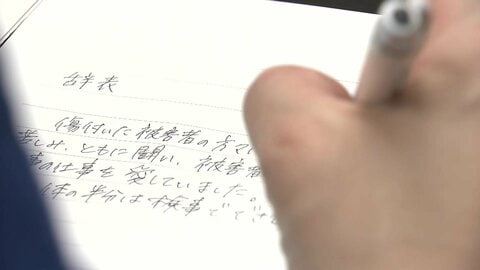 辞表
傷付いた被害者の方々
苦しみ、ともに闘い、被害者
事の仕事を愛していました。
体の半分は検事でで